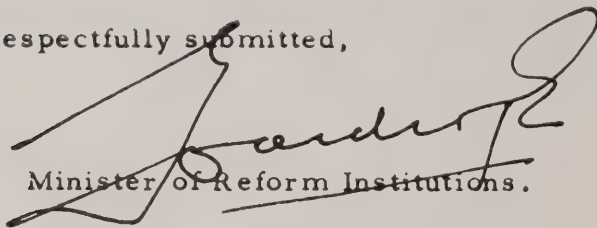 espectfully submitted,
Minister of Reform Institutions.